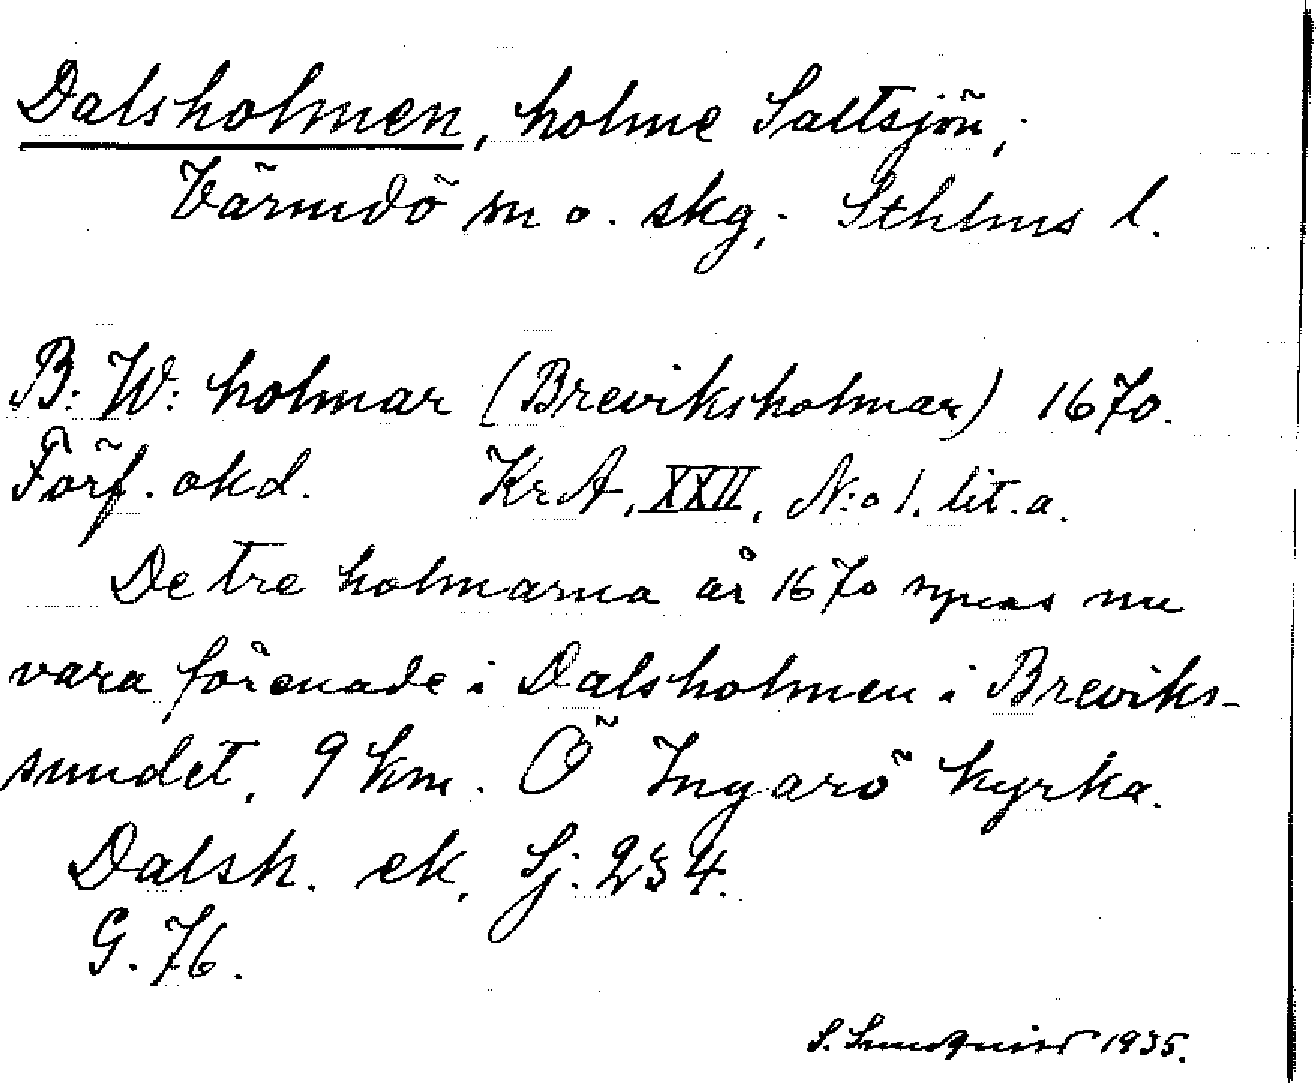 Dalsholmen, holme Saltsjön,
Värmdö m o. skg, Sthlms l.
B: W: holmar (Breviksholmar) 1670.
Förf. okd. KrA, XXII, N:o 1. lit. a.
De tre holmarna år 1670 synas nu
vara förenade i Dalsholmen i Breviks-
sundet, 9 km. Ö Ingarö kyrka.
Dalsh. ek, Sj: 234.
G. 76.
S. Lundquist 1935.